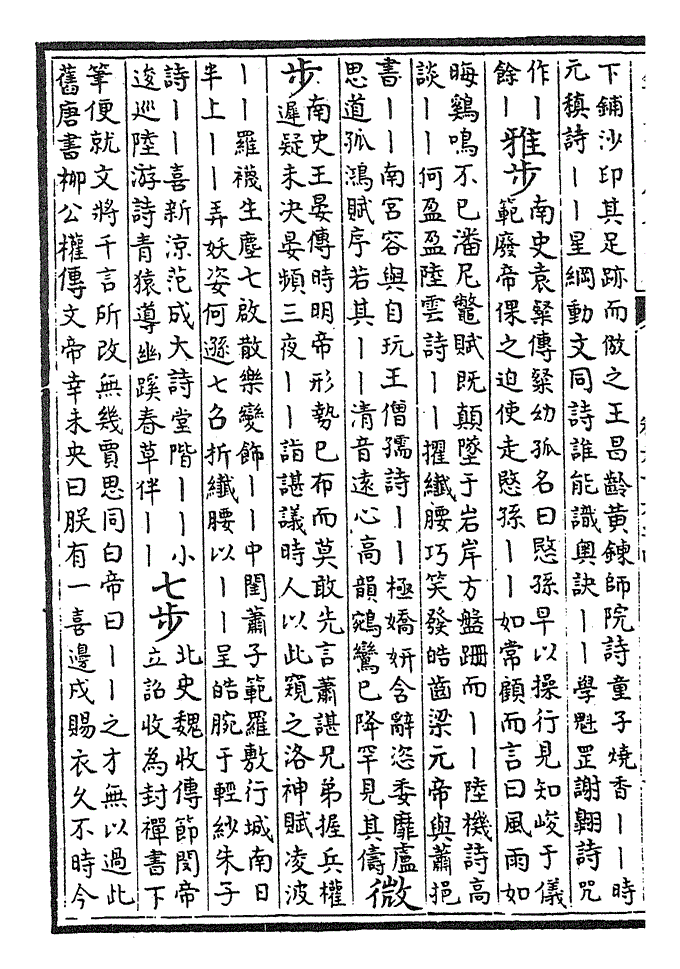 下鋪沙印其足跡而倣之王昌齡黄鍊師院詩童子燒香丨丨時
元稹詩丨丨星綱動文同詩誰能識奧訣丨丨學魁罡謝翺詩咒
作丨
餘丨
雅步
南史袁粲傳粲幼孤名曰愍孫早以操行見知峻于儀
範廢帝倮之迫使走愍孫丨丨如常顧而言曰風雨如
晦鷄鳴不已潘尼鼈賦既顛墜于岩岸方盤跚而丨丨陸機詩高
談丨丨何盈盈陸雲詩丨丨擢纖腰巧笑發皓齒梁元帝與蕭挹
書丨丨南宮容與自玩王僧孺詩丨丨極嬌妍含辭恣委靡盧
思道孤鴻賦序若其丨丨清音遠心高韻鵷鸞已降罕見其儔
微
步
南史王晏傳時明帝形勢已布而莫敢先言蕭諶兄弟握兵權
遲疑未決晏頻三夜丨丨詣諶議時人以此窺之洛神賦凌波
丨丨羅襪生塵七啟散樂變飾丨丨中閨蕭子範羅敷行城南日
半上丨丨弄妖姿何遜七召折纖腰以丨丨呈皓腕于輕紗朱子
詩丨丨喜新涼范成大詩堂階丨丨小
逡巡陸游詩青猿導幽蹊春草伴丨丨
七步
北史魏收傳節閔帝
立詔收為封禪書下
筆便就文將千言所改無幾賈思同白帝曰丨丨之才無以過此
舊唐書柳公權傳文帝幸未央曰朕有一喜邊戍賜衣久不時今